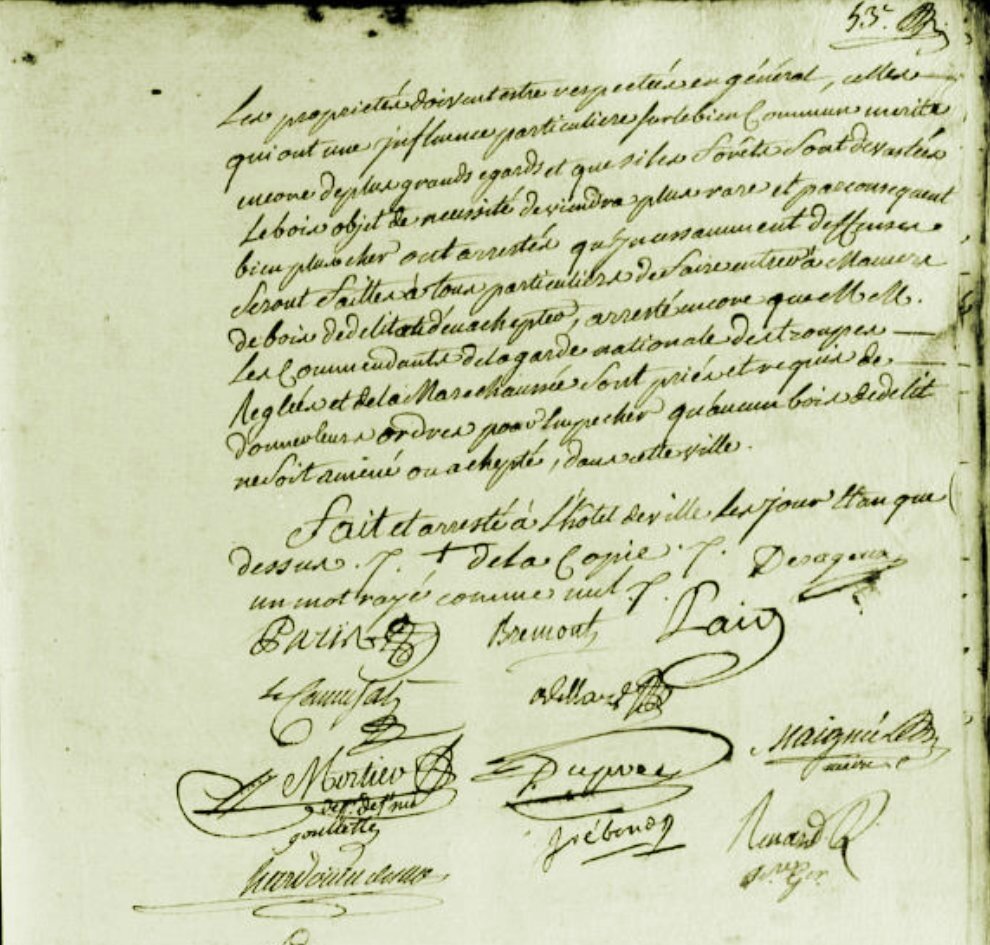 53e.
Les proprietés doivent estre respectées en général, celles
qui ont une jnfluence particuliere sur le bien Commun merite
encore de plus grands egards et que si les forêts sont devastées
Le bois objet de necessité deviendra plus rare et par consequent
bien plus cher ont arrestés qu'jncessamment deffenses
seront faittes à tous particuliers de faire entrer à Mamers
de bois de delit et d'en achepter, arresté encore que M M.
Les Commendants de la garde nationale des troupes
Reglées et de la Marechaussée sont priés et requis de
donner leurs ordres pour Empecher qu'aucun bois de delit
ne soit amené ou achepté, dans cette ville.
Fait et arresté à l'hôtel de ville Les jour Et an que
dessus ./. + de la Copie ./.
un mot rayé comme nul ./.
Bremont
Mortier
Maigné
maire
Renard